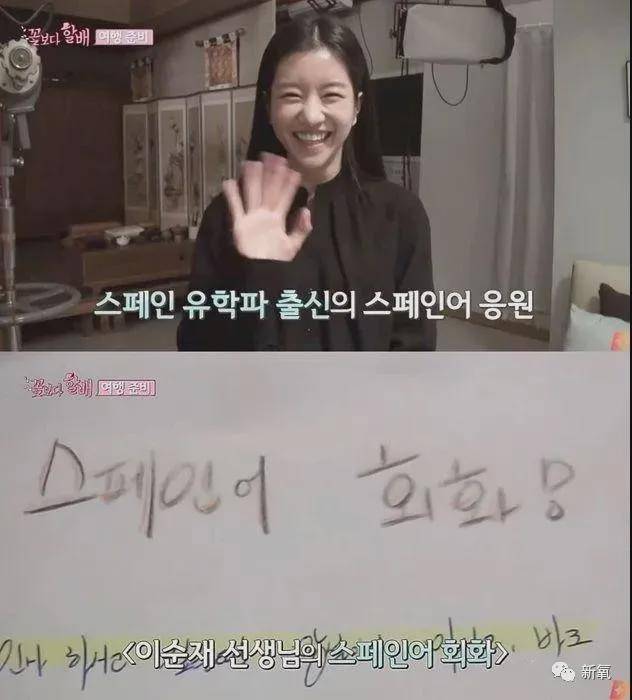 꽃보다 할배 여행 준비
스페인 유학파 출신의 스페인어 응원
꽃보다 할배 여행 준비
스페인어 회화
하시고
<이순재 선생님의 스페인어 회화>
바로
新氧